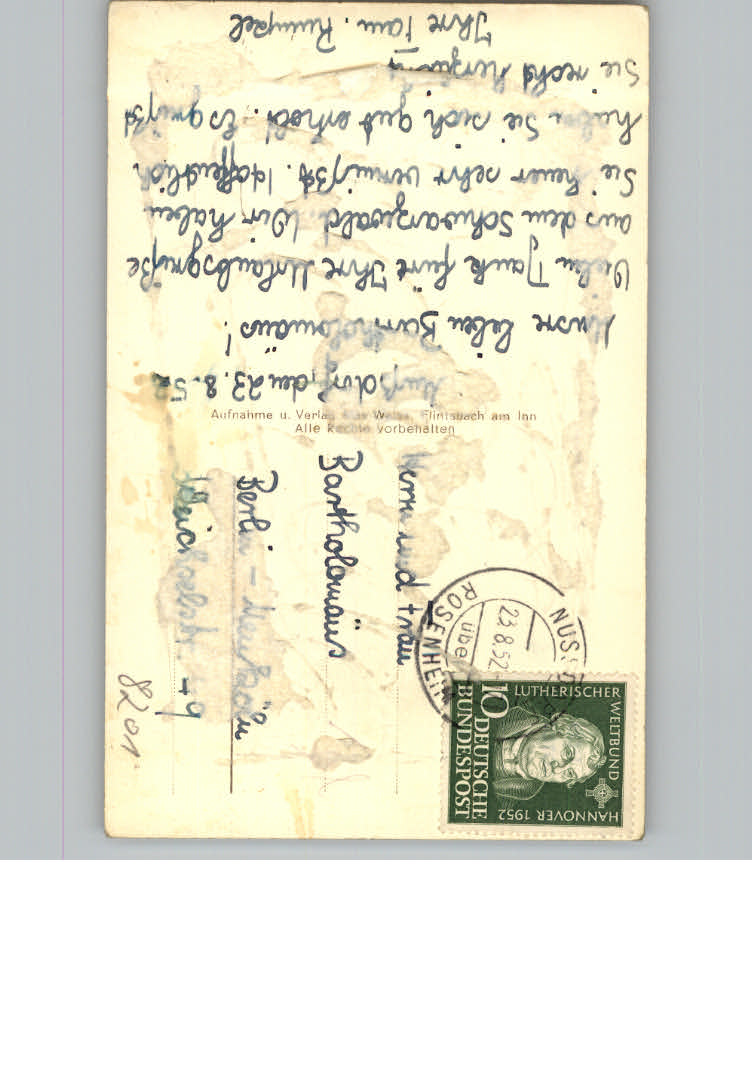 Nußdorf, den 23.8.52
Unsre lieben Bartholomäus!
Vielen Dank fürt Ihre Urlaubsgrüße
aus dem Schwarzwald. Wir haben
Sie heuer sehr vermißt. Hoffentlich
haben Sie sich gut erholt. Es grüßt
Sie recht herzlichst
Ihre Fam. Rumpel
Aufnahme u. Verlag Weiss, Flintsbach am Inn
Alle Rechte vorbehalten
Herrn und Frau
Bartholomäus
Berlin - Neukölln
8201
ROSENHEIM
23.8.52
LUTHERISCHER WELTBUND
HANNOVER 1952
10 DEUTSCHE
BUNDESPOST